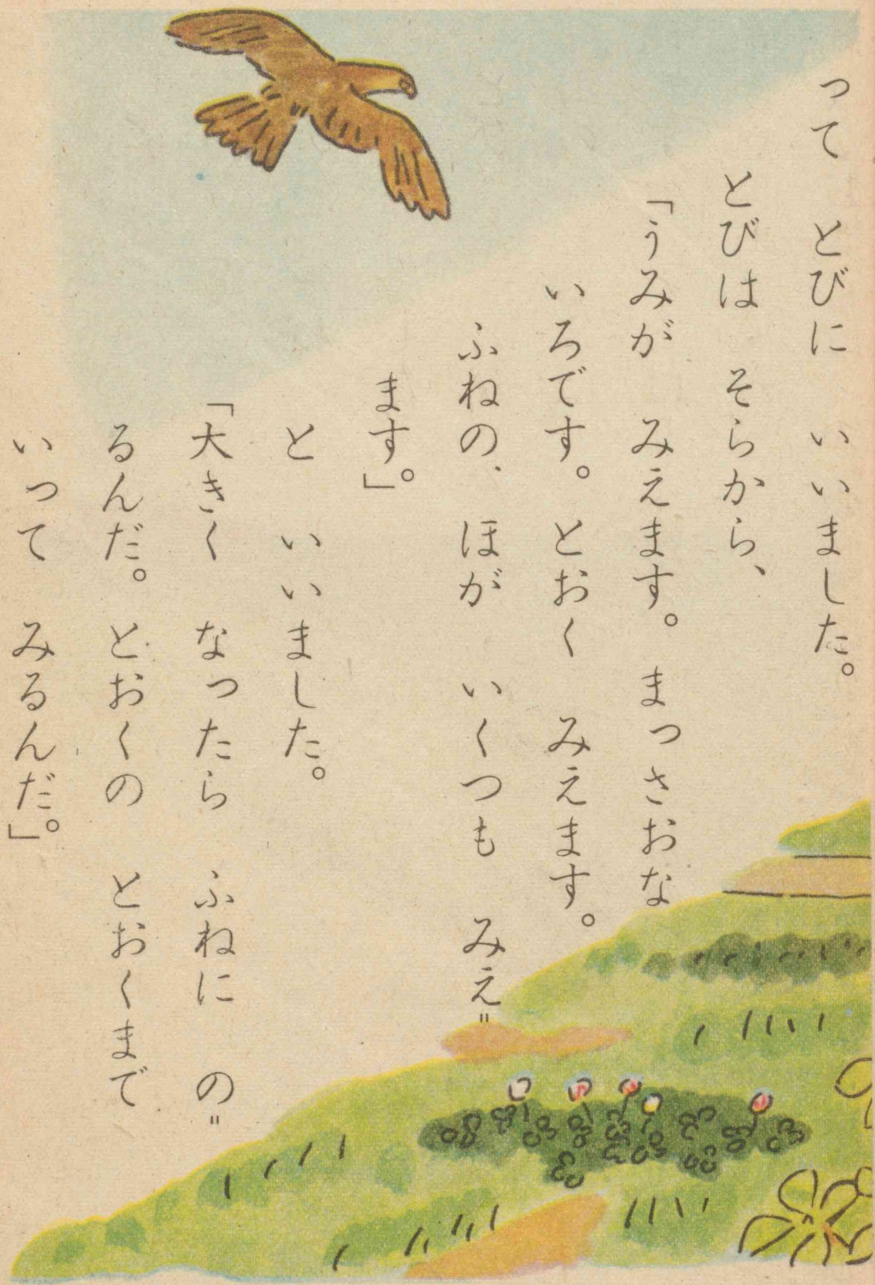 って とびに いいました。
とびは そらから、
「うみが みえます。まっさおな
いろです。とおく みえます。
ふねの、ほが いくつも みえ〃
ます。」
と いいました。
「大きく なったら ふねに の〃
るんだ。とおくの とおくまで
いって みるんだ。」